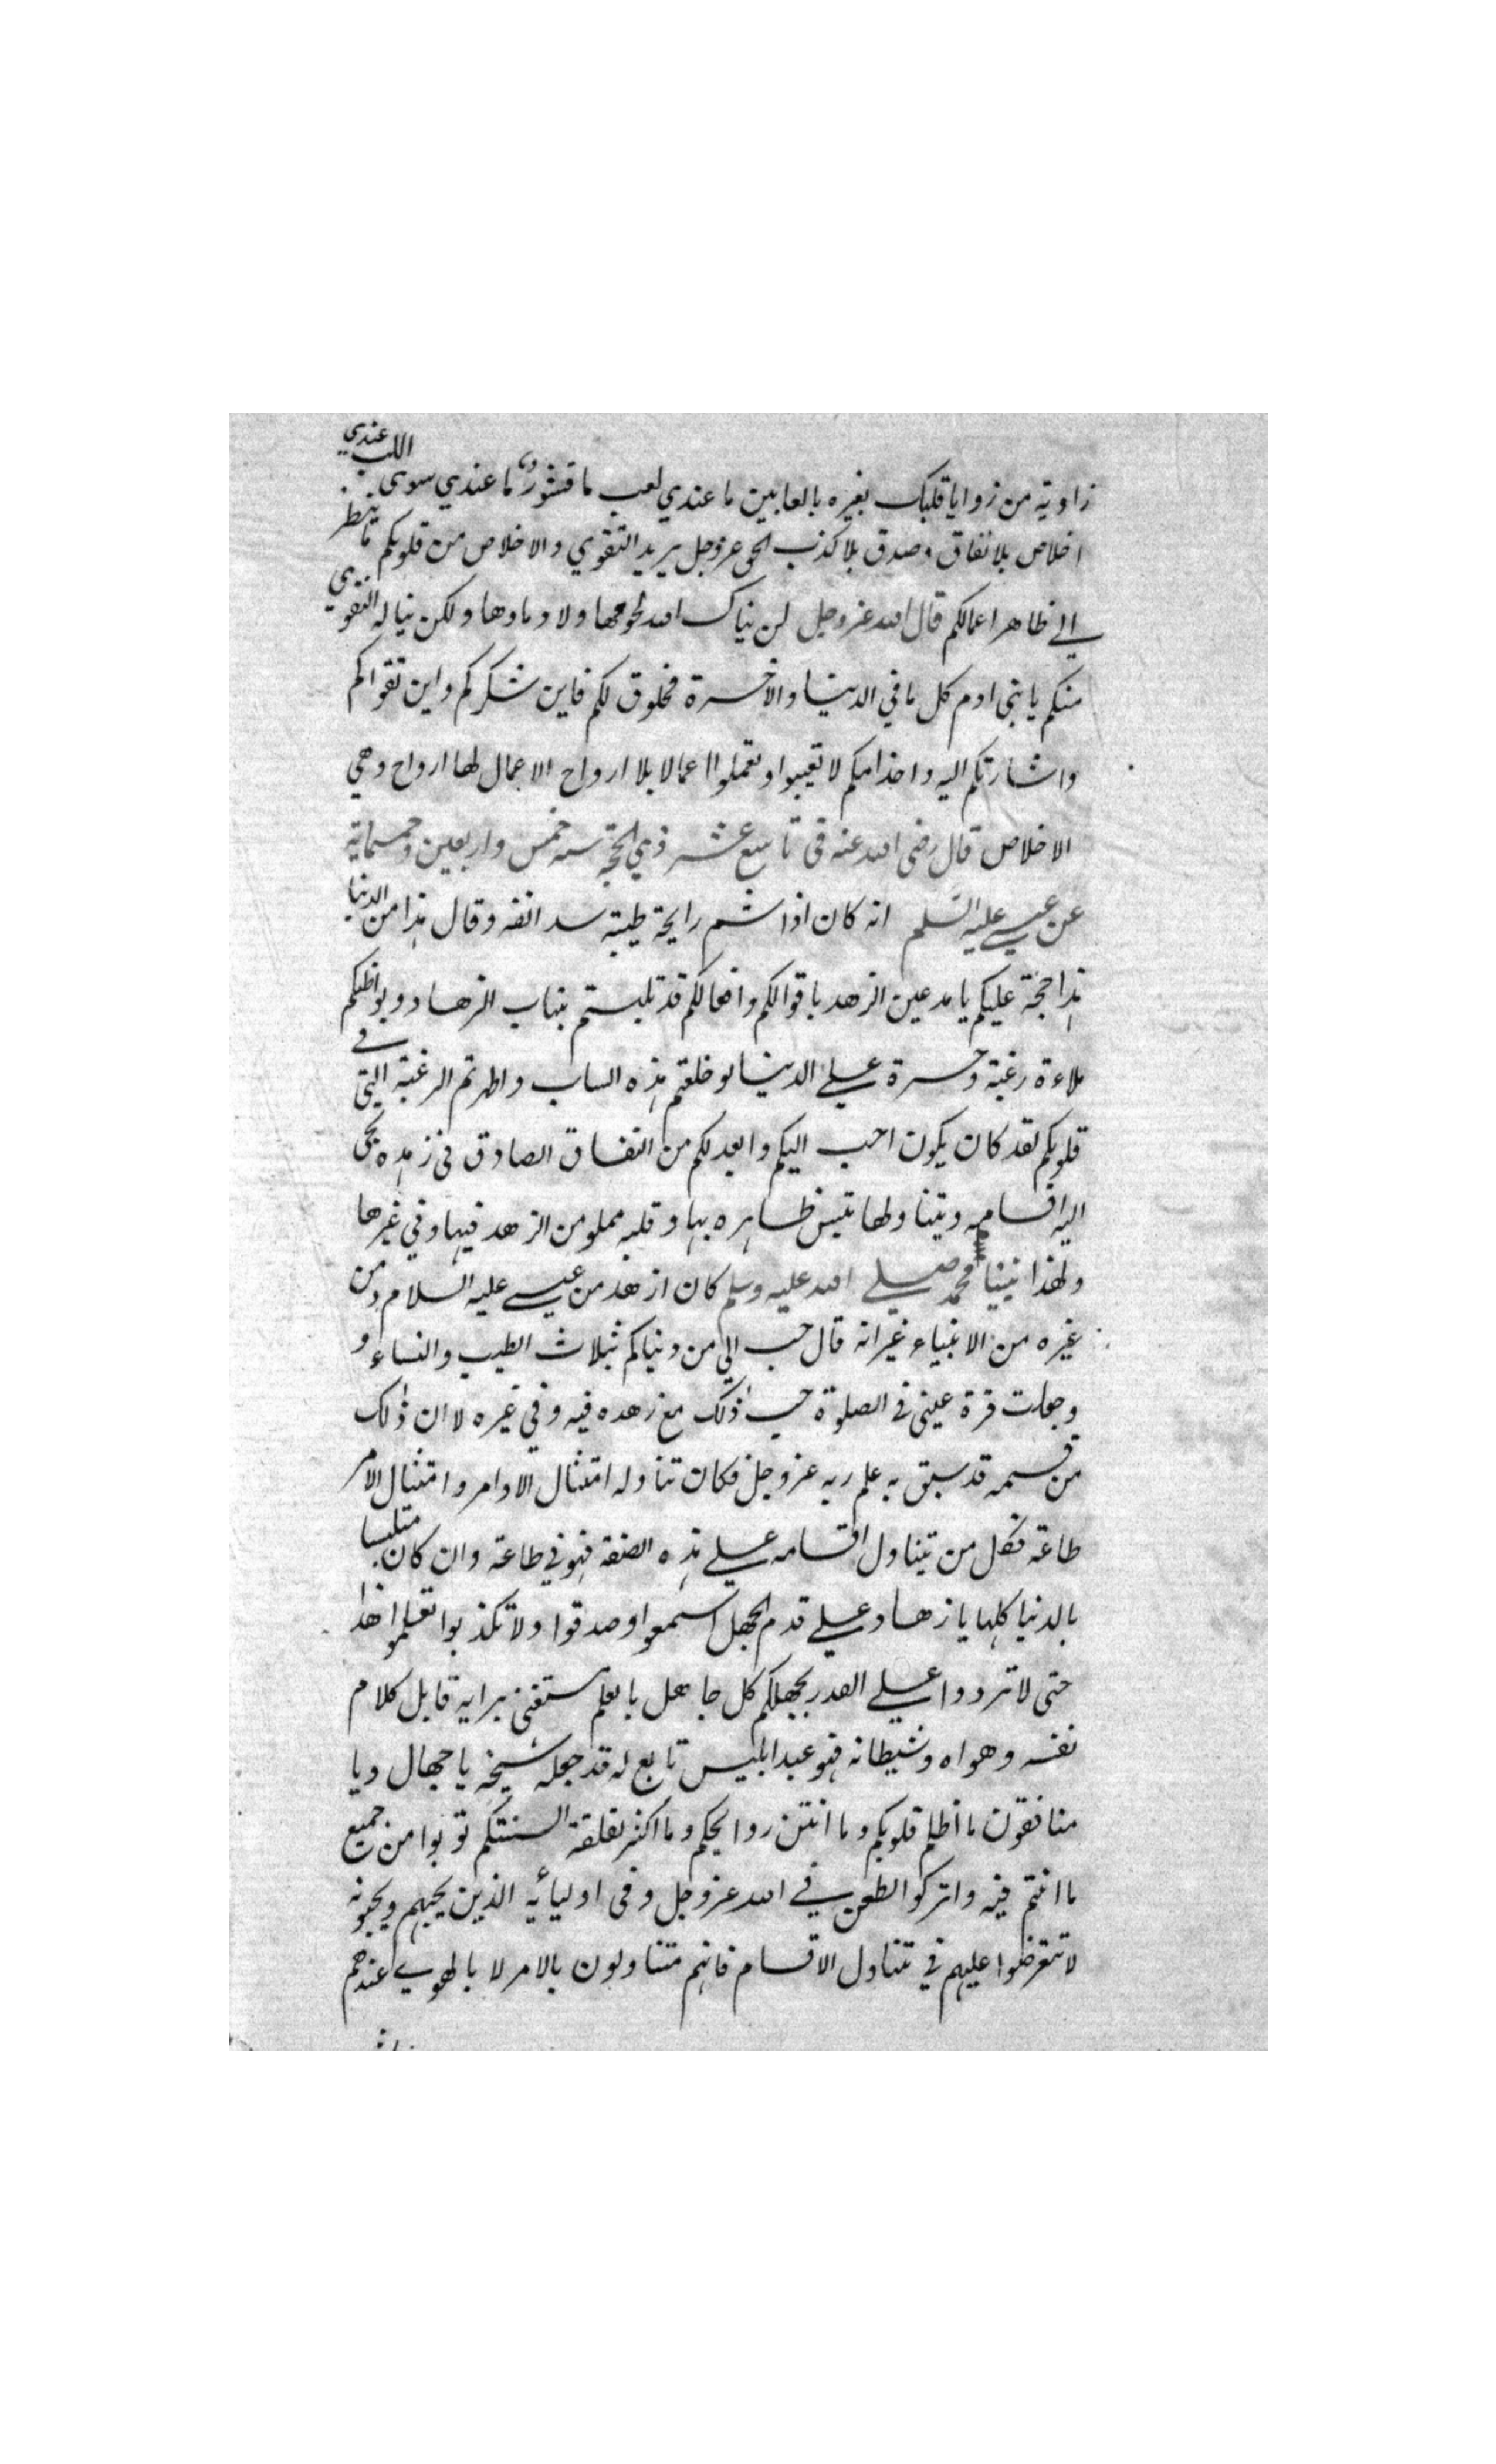 زاوية من زوايا قلبك بغيره يالعابين ما عندي لعب ما قشور ما عندي سوى اللب عندي
اخلاص بلا نفاق وصدق بلا كذب الحق عزوجل يريد التقوي والاخلاص من قلوبكم ما ينظر
الي ظاهر اعمالكم قال الله عزوجل لن ينال الله لحومها ولا دماوها ولكن يناله التقوي
منكم يا بني ادم كل ما في الدنيا والاخرة مخلوق لكم فاين شكركم واين تقواكم
واشارتكم اليه واخدامكم لا تعيبوا وتعملوا اعمالا بلا ارواح الاعمال لها ارواح وهي
الاخلاص قال رضي الله عنه في تاسع عشر ذي الحجة سنة خمس واربعين وخمسماية
عن عيسي عليه السلم انه كان اذا شم رايحة طيبة سد انفه وقال هذا من الدنيا
هذا حجة عليكم يا مدعين الزهد باقوالكم وافعالكم قد تلبستم بثياب الزهاد وبواطنكم
ملاءة رغبة وحسرة علي الدنيا لو خلعتم هذه الساب واظهرتم الرغبة التي في
قلوبكم لقد كان يكون احب اليكم وابعد لكم من النفاق الصادق في زهده يجي
اليه اقسامه ويتناولها تلبس ظاهره بها وقلبه مملو من الزهد فيها وفي غيرها
ولهذا نبينا محمد صلي الله عليه وسلم كان ازهد من عيسي عليه السلام ومن
غيره من الانبياء غير انه قال حبب الي من دنياكم ثلاث الطيب والنساء و
وجعلت قرة عيني في الصلوة حبب ذلك مع زهده فيه وفي غيره لا ان ذلك
من قسمه قد سبق به علم ربه عزوجل فكان تناوله امتثال الاوامر وامتثال الامر
طاعة فكل من يتناول اقسامه علي هذه الصفة فهو في طاعة وان كان متلبسا
بالدنيا كلها يا زهاد علي قدم الجهل اسمعوا وصدقوا ولا تكذبوا تعلموا هذا
حتي لا تردوا علي القدر بجهلكم كل جاهل بالعلم مستغني برايه قابل كلام
نفسه وهواه وشيطانه فهو عبد ابليس تابع له قد جعله شيخه يا جهال ويا
منافقون ما اظلم قلوبكم وما انتن روايحكم وما اكثر لقلقة السنتكم توبوا من جميع
ما انتم فيه واتركوا الطعن في الله عزوجل وفي اوليائه الذين يحبهم ويحبونه
لا تتعرضوا عليهم في تناول الاقسام فانهم متناولون بالامر لا بالهوي عندهم